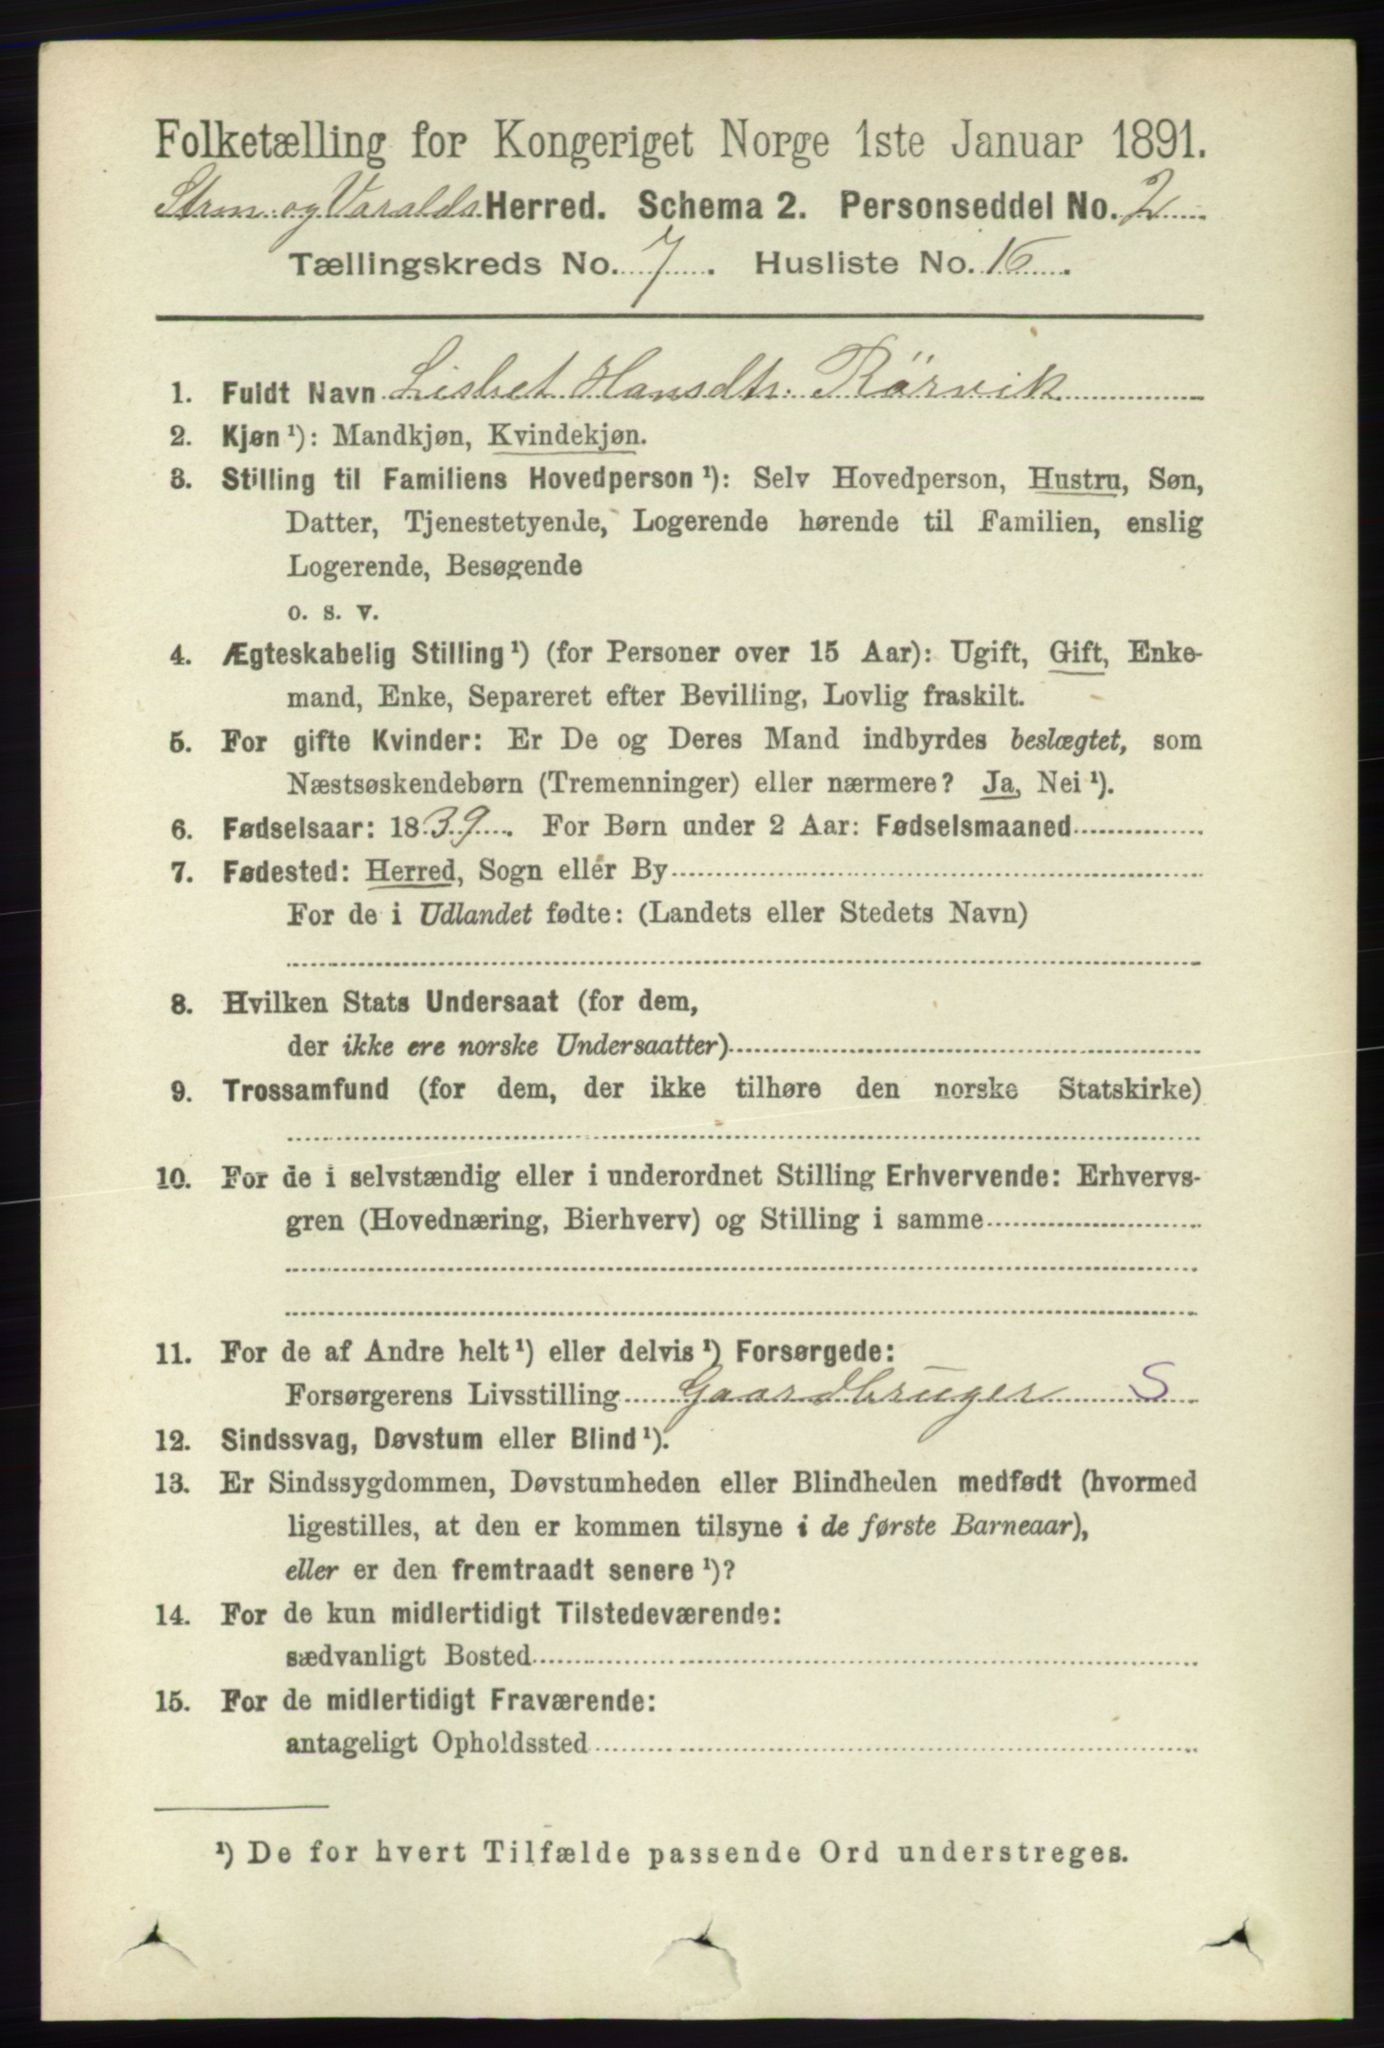 Folketælling for Kongeriget Norge 1ste Januar 1891.
Strm. og Varalds Herred. Schema 2. Personseddel No. 2
Tællingskreds No. 7. Husliste No. 16.
1. Fuldt Navn Lisbet Hansdtr. Rörvik
2. Kjøn ¹): Mandkjøn, Kvindekjøn.
3. Stilling til Familiens Hovedperson ¹): Selv Hovedperson, Hustru, Søn,
Datter, Tjenestetyende, Logerende hørende til Familien, enslig
Logerende, Besøgende
o. s. v.
4. Ægteskabelig Stilling ¹) (for Personer over 15 Aar): Ugift, Gift, Enke-
mand, Enke, Separeret efter Bevilling, Lovlig fraskilt.
5. For gifte Kvinder: Er De og Deres Mand indbyrdes beslægtet, som
Næstsøskendebørn (Tremenninger) eller nærmere? Ja, Nei ¹).
6. Fødselsaar: 1839. For Børn under 2 Aar: Fødselsmaaned
7. Fødested: Herred, Sogn eller By
For de i Udlandet fødte: (Landets eller Stedets Navn)
8. Hvilken Stats Undersaat (for dem,
der ikke ere norske Undersaatter)
9. Trossamfund (for dem, der ikke tilhøre den norske Statskirke)
10. For de i selvstændig eller i underordnet Stilling Erhvervende: Erhvervs-
gren (Hovednæring, Bierhverv) og Stilling i samme
11. For de af Andre helt ¹) eller delvis ¹) Forsørgede:
Forsørgerens Livsstilling Gaardbruger S
12. Sindssvag, Døvstum eller Blind ¹).
13. Er Sindssygdommen, Døvstumheden eller Blindheden medfødt (hvormed
ligestilles, at den er kommen tilsyne i de første Barneaar),
eller er den fremtraadt senere ¹)?
14. For de kun midlertidigt Tilstedeværende:
sædvanligt Bosted
15. For de midlertidigt Fraværende:
antageligt Opholdssted
¹) De for hvert Tilfælde passende Ord understreges.